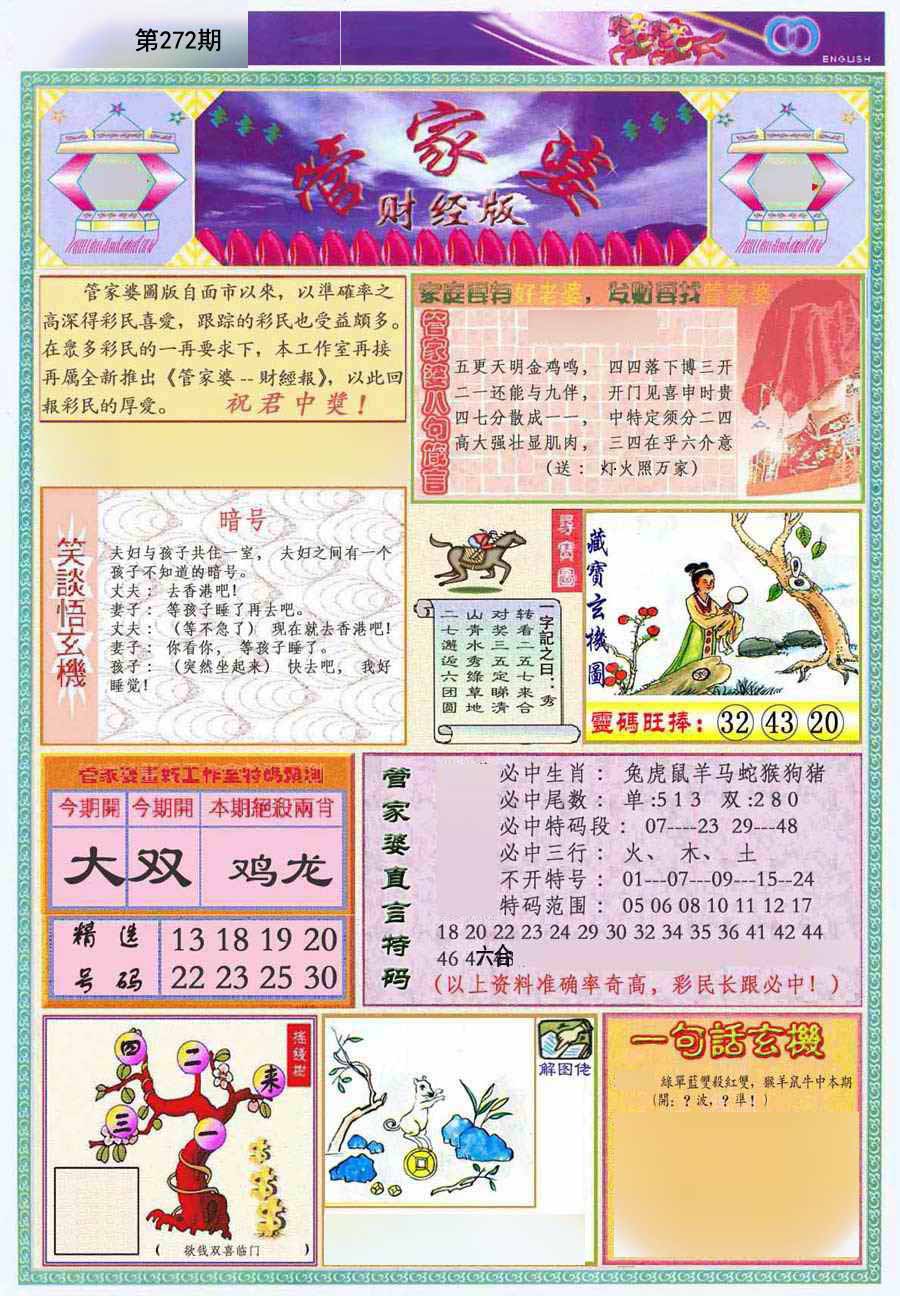 第272期
ENGLISH
管家婆
财经版
管家婆圖版自面市以來，以準確率之
高深得彩民喜愛，跟踪的彩民也受益頗多。
在眾多彩民的一再要求下，本工作室再接
再厲全新推出《管家婆--財經報》，以此回
報彩民的厚愛。 祝君中獎！
家庭要有好老婆，发财要找管家婆
管家婆八句箴言
五更天明金鸡鸣， 四四落下博三开
二一还能与九伴， 开门见喜申时贵
四七分散成一一， 中特定须分二四
高大强壮显肌肉， 三四在乎六介意
(送： 灯火照万家)
笑談悟玄機
暗号
夫妇与孩子共住一室， 夫妇之间有一个
孩子不知道的暗号。
丈夫： 去香港吧！
妻子： 等孩子睡了再去吧。
丈夫：（等不急了） 现在就去香港吧！
妻子： 你看你， 等孩子睡了。
孩子：（突然坐起来） 快去吧， 我好
睡觉！
尋寶圖
一字記之曰：秀
转看二五七来合
对奖三五定睇清
山青水秀綠草地
二七邂逅六团圆
藏寶玄機圖
靈碼旺捧：32 43 20
管家婆畫新工作室特碼預測
今期開 今期開 本期絕殺兩肖
大 双 鸡龙
精选 13 18 19 20
号码 22 23 25 30
管家婆直言特码
必中生肖： 兔虎鼠羊马蛇猴狗猪
必中尾数： 单:5 1 3 双:2 8 0
必中特码段： 07----23 29---48
必中三行： 火、 木、 土
不开特号： 01---07---09---15--24
特码范围： 05 06 08 10 11 12 17
18 20 22 23 24 29 30 32 34 35 36 41 42 44
46 4 六合
(以上资料准确率奇高，彩民长跟必中！)
搖錢樹
四
二
来
三
一
( 欲钱双喜临门 )
解图佬
一句話玄機
綠單藍雙殺紅雙，猴羊鼠牛中本期
(開：？波，？準！)